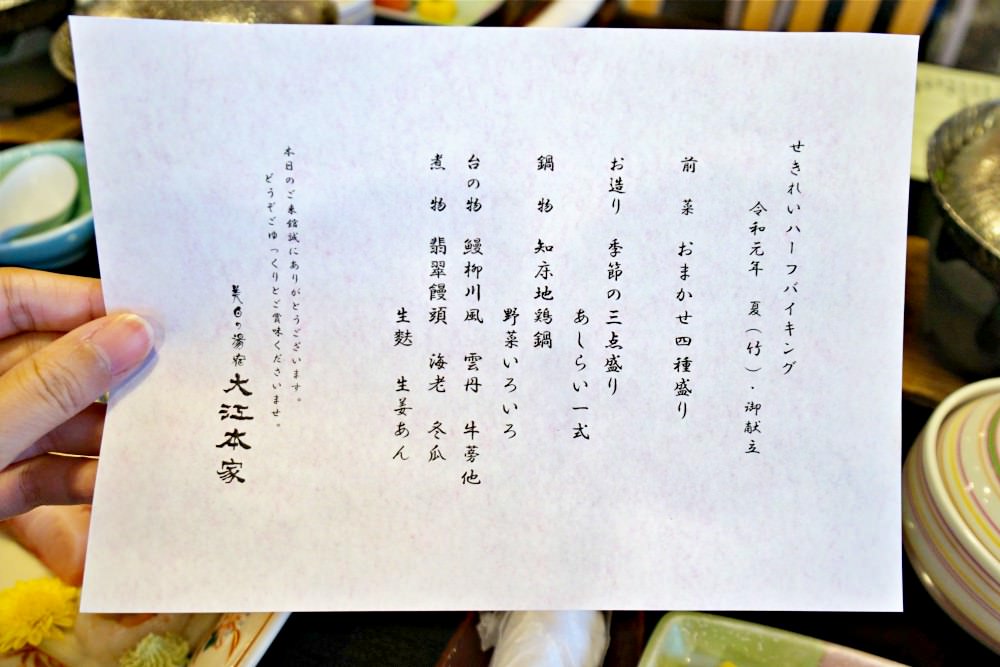 せきれいハーフバイキング
令和元年　夏（竹）・御献立
前　菜　おまかせ四種盛り
お造り　季節の三点盛り
あしらい一式
鍋　物　知床地鶏鍋
野菜いろいろ
台の物　鰻柳川風　雲丹　牛蒡他
煮　物　翡翠饅頭　海老　冬瓜
生麩　生姜あん
本日のご来館誠にありがとうございます。
どうぞごゆっくりとご賞味くださいませ。
美白の湯宿 大江本家